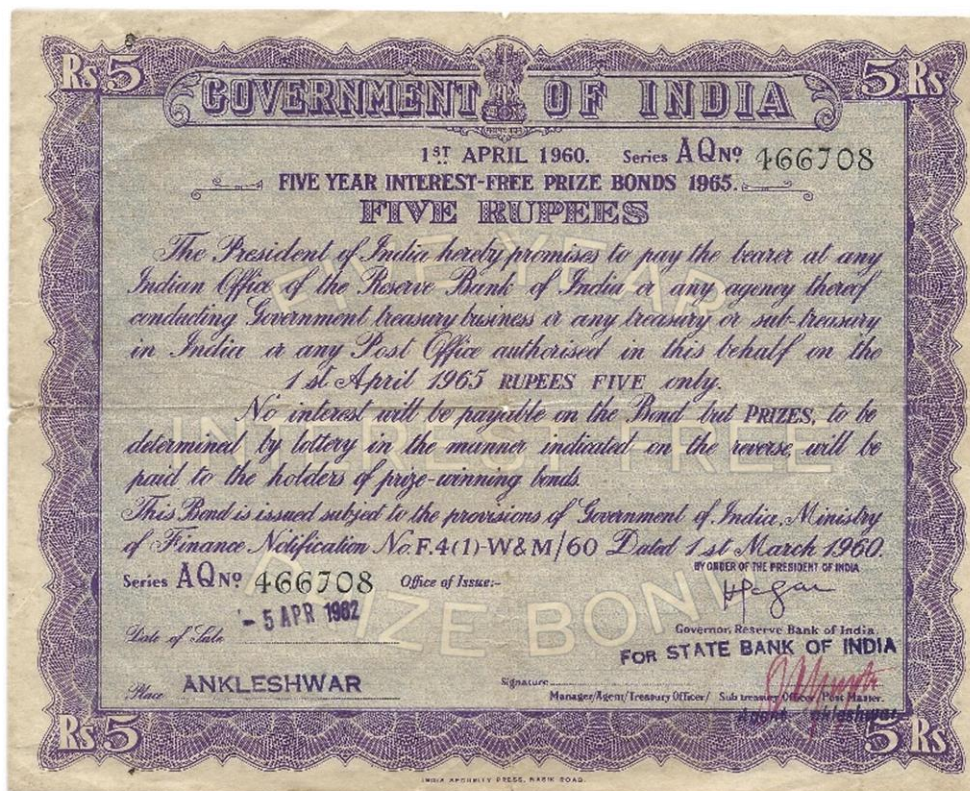 Rs 5 5 Rs
GOVERNMENT OF INDIA
1ST APRIL 1960. Series AQ No 466708
FIVE YEAR INTEREST-FREE PRIZE BONDS 1965.
FIVE RUPEES
The President of India hereby promises to pay the bearer at any
Indian Office of the Reserve Bank of India or any agency thereof
conducting Government treasury business or any treasury or sub-treasury
in India or any Post Office authorised in this behalf on the
1st April 1965 RUPEES FIVE only.
No interest will be payable on the Bond but PRIZES, to be
determined by lottery in the manner indicated on the reverse, will be
paid to the holders of prize-winning bonds.
This Bond is issued subject to the provisions of Government of India, Ministry
of Finance Notification No. F.4(1)-W&M/60 Dated 1st March 1960.
BY ORDER OF THE PRESIDENT OF INDIA
Series AQ No 466708 Office of Issue:-
- 5 APR 1962
Date of Sale
Governor, Reserve Bank of India.
FOR STATE BANK OF INDIA
Place ANKLESHWAR
Signature
Manager/Agent/Treasury Officer/ Sub treasury Officer/Post Master.
Agent Ankleshwar
Rs 5 5 Rs
INDIA SECURITY PRESS, NASIK ROAD.
FIVE YEAR
INTEREST FREE
PRIZE BOND